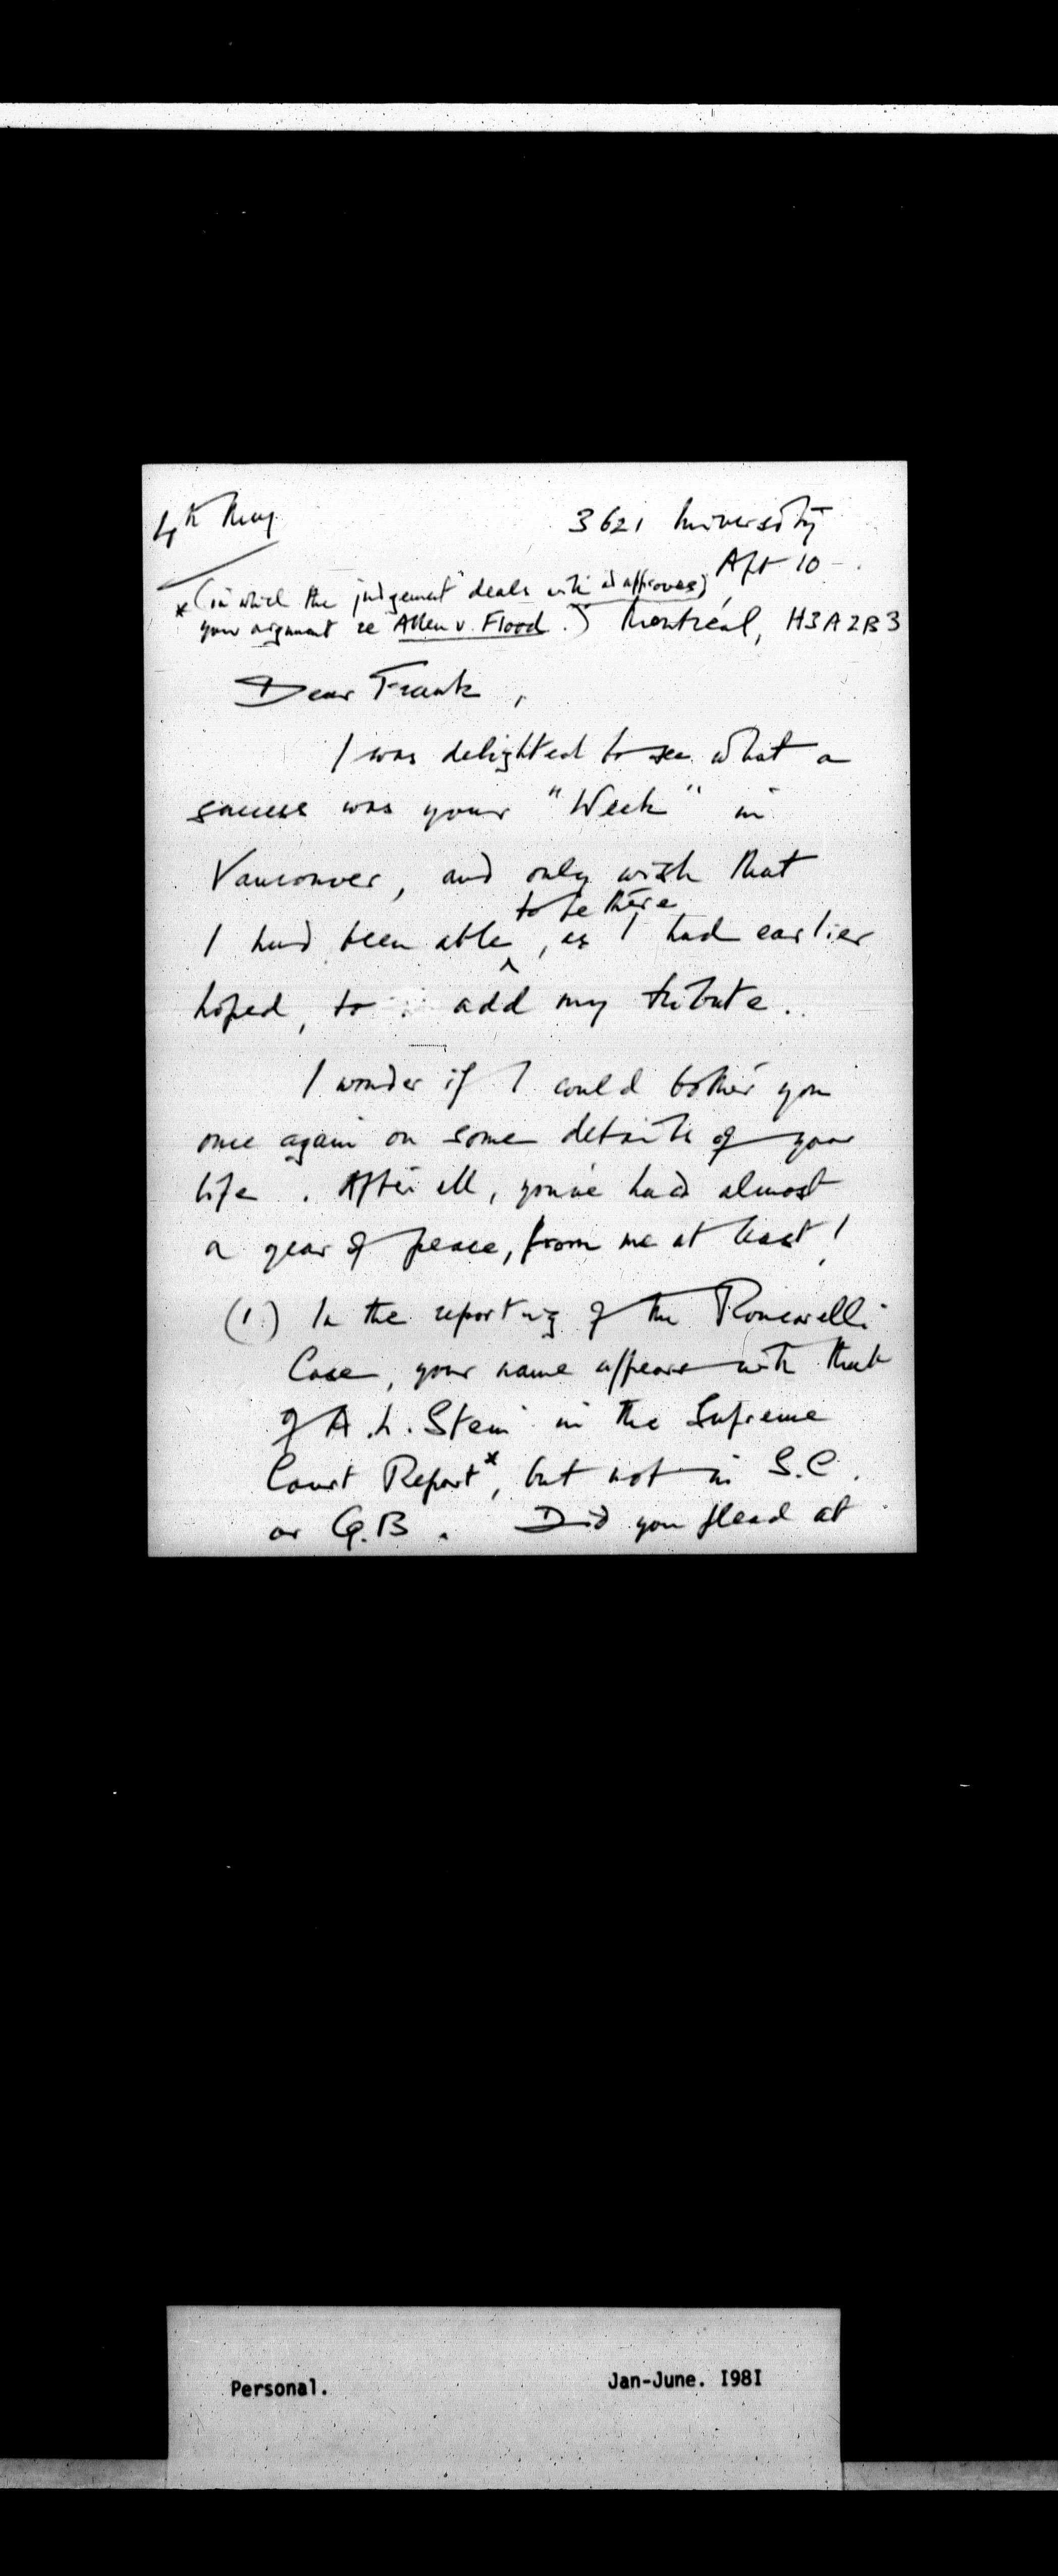 4th May
3621 University
Apt 10 -
* (in which the judgement deals with and approves)
your argument re Allen v. Flood.)
Montréal, H3A2B3
Dear Frank,
I was delighted to see what a
success was your "Week" in
Vancouver, and only wish that
to be there
I had been able ^, as I had earlier
hoped, to add my tribute..
I wonder if I could bother you
once again on some details of your
life. After all, you've had almost
a year of peace, from me at least!
(1) In the reporting of the Roncarelli
Case, your name appears with that
of A.L. Stein in the Supreme
Court Report*, but not in S.C.
or Q.B. Did you plead at
Personal. Jan-June. I98I